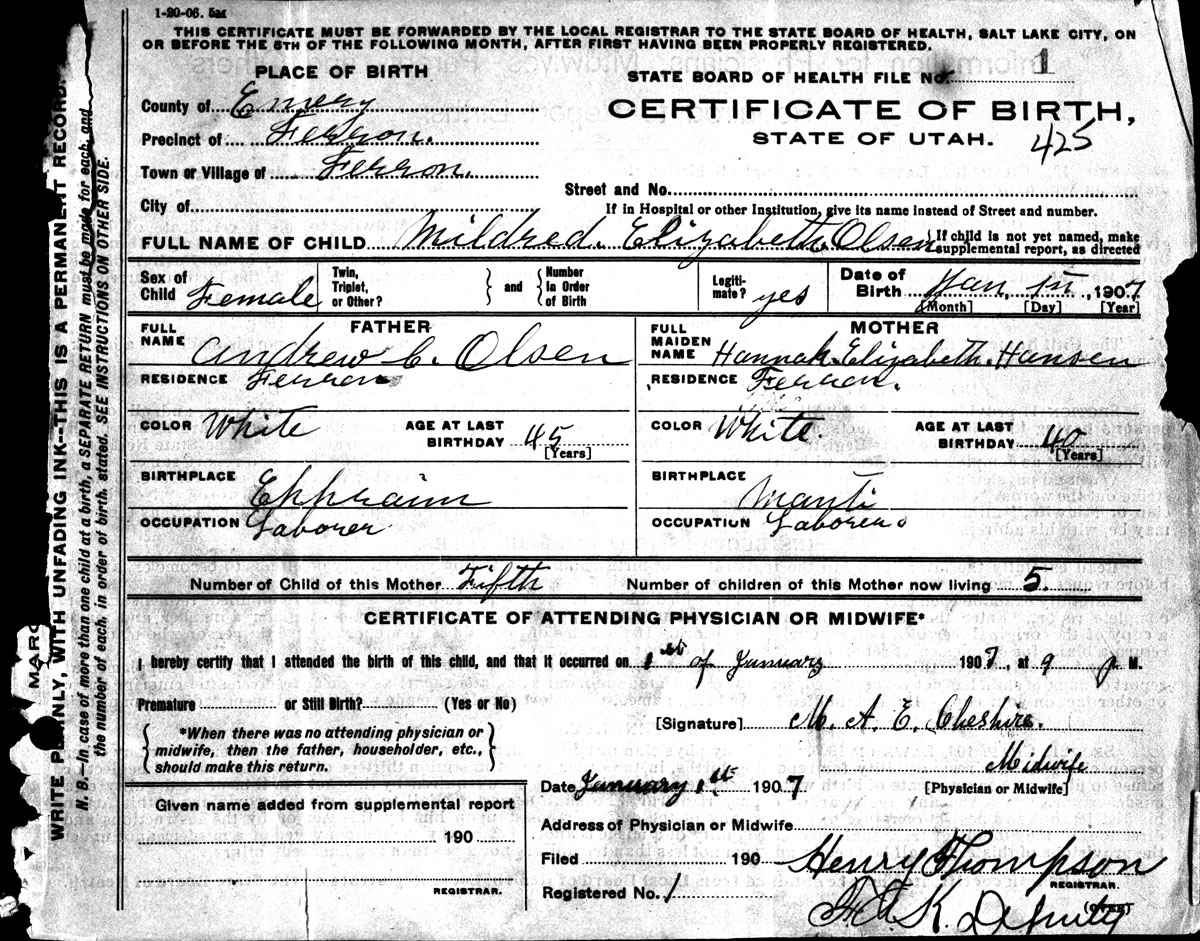 1-20-06. 5M
THIS CERTIFICATE MUST BE FORWARDED BY THE LOCAL REGISTRAR TO THE STATE BOARD OF HEALTH, SALT LAKE CITY, ON
OR BEFORE THE 5TH OF THE FOLLOWING MONTH, AFTER FIRST HAVING BEEN PROPERLY REGISTERED.
PLACE OF BIRTH
STATE BOARD OF HEALTH FILE No. 1
County of Emery
CERTIFICATE OF BIRTH,
Precinct of Ferron.
STATE OF UTAH. 425
Town or Village of Ferron.
Street and No.
City of
If in Hospital or other Institution, give its name instead of Street and number.
FULL NAME OF CHILD Mildred. Elizabeth. Olsen {If child is not yet named, make supplemental report, as directed
Sex of Child Female Twin, Triplet, or Other? } and { Number in Order of Birth Legiti-mate? yes Date of Birth Jan, 1st, 1907
[Month] [Day] [Year]
FATHER
FULL NAME Andrew C. Olsen
RESIDENCE Ferron
COLOR White AGE AT LAST BIRTHDAY 45
[Years]
BIRTHPLACE Ephraim
OCCUPATION Laborer
MOTHER
FULL MAIDEN NAME Hannah. Elizabeth. Hansen
RESIDENCE Ferron.
COLOR White. AGE AT LAST BIRTHDAY 40
[Years]
BIRTHPLACE Manti
OCCUPATION Laborer.
Number of Child of this Mother Fifth Number of children of this Mother now living 5.
CERTIFICATE OF ATTENDING PHYSICIAN OR MIDWIFE*
I hereby certify that I attended the birth of this child, and that it occurred on 1st of January 1907, at 9 p M.
Premature or Still Birth? (Yes or No)
[Signature] M. A. E. Cheshire.
*When there was no attending physician or
midwife, then the father, householder, etc.,
should make this return.
Midwife
[Physician or Midwife]
Date January 1st 1907
Given name added from supplemental report
190
REGISTRAR.
Address of Physician or Midwife
Filed 190 Henry Thompson
REGISTRAR.
Registered No. 1
K. Deputy
(OVER)
WRITE PLAINLY, WITH UNFADING INK--THIS IS A PERMANENT RECORD.
N. B.--In case of more than one child at a birth, a SEPARATE RETURN must be made for each, and
the number of each, in order of birth, stated. SEE INSTRUCTIONS ON OTHER SIDE.